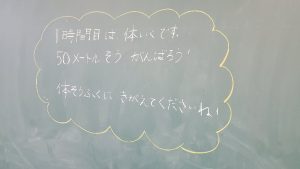 1時間目は 体いくです。
50メートルそう がんばろう!
体そうふくに きがえてくださいね!